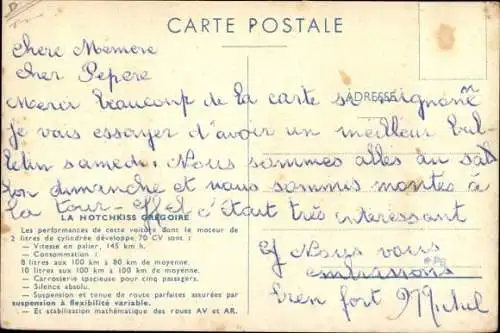 CARTE POSTALE
Chere Mémere
Cher Pepere
Merci beaucoup de la carte si mignone
ADRESSE
je vais essayer d'avoir un meilleur bul
letin samedi. Nous sommes allés au sal
lon dimanche et nous sommes montés à
la tour-Effel c'était très interessant
LA HOTCHKISS GRÉGOIRE
Les performances de cette voiture dont le moteur de
2 litres de cylindrée développe 70 CV sont :
— Vitesse en palier, 145 km h.
— Consommation :
8 litres aux 100 km à 80 km de moyenne.
10 litres aux 100 km à 100 km de moyenne.
— Carrosserie spacieuse pour cinq passagers.
— Silence absolu.
— Suspension et tenue de route parfaites assurées par
suspension à flexibilité variable.
— Et stabilisation mathématique des roues AV et AR.
Nous vous
embrassons
bien fort Michel